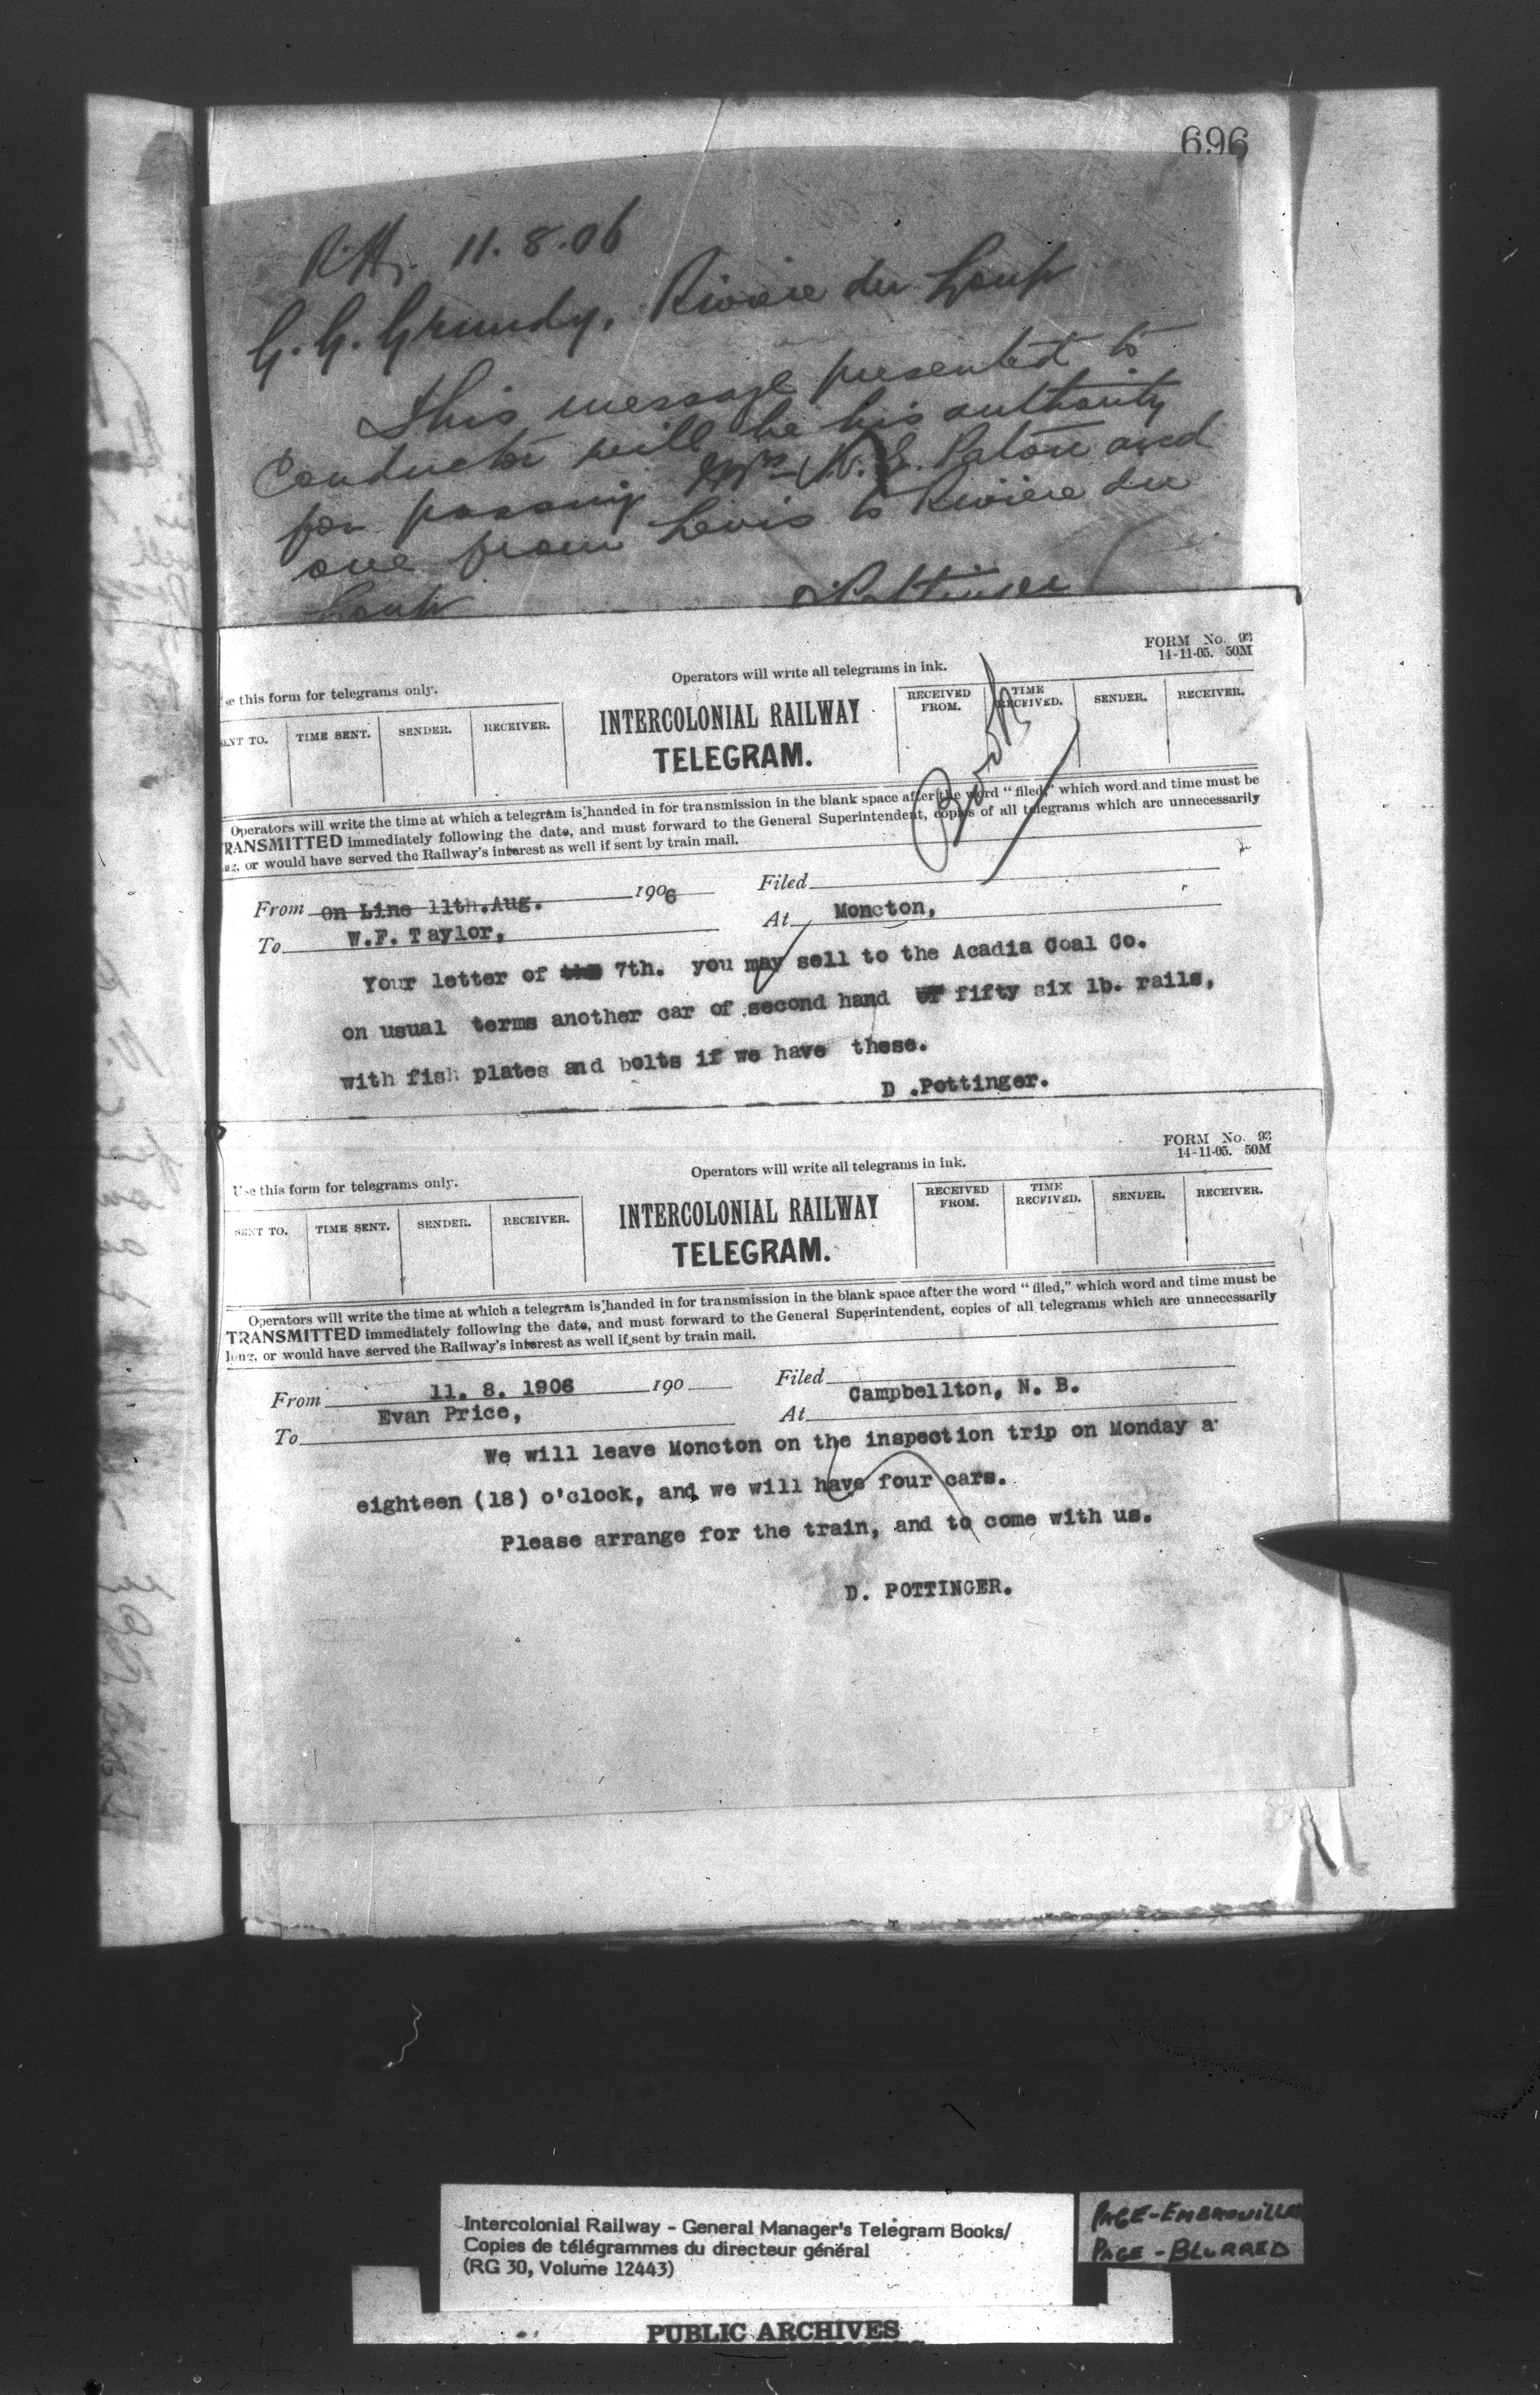 696
11.8.06
G. G. Grundy, Riviere du Loup
This message presented to
Conductor will be his authority
for passing Mrs W. E. Paton and
one from Levis to Riviere du
Loup
Pottinger
FORM No. 93
14-11-05. 50M
Operators will write all telegrams in ink.
se this form for telegrams only.
ENT TO. TIME SENT. SENDER. RECEIVER. INTERCOLONIAL RAILWAY TELEGRAM. RECEIVED FROM. TIME RECEIVED. SENDER. RECEIVER.
Operators will write the time at which a telegram is handed in for transmission in the blank space after the word "filed," which word and time must be
RANSMITTED immediately following the date, and must forward to the General Superintendent, copies of all telegrams which are unnecessarily
ng, or would have served the Railway's interest as well if sent by train mail.
From on Line 11th.Aug. 1906 Filed
To W.F. Taylor, At Moncton,
Your letter of the 7th. you may sell to the Acadia Coal Co.
on usual terms another car of second hand or fifty six lb. rails,
with fish plates and bolts if we have these.
D .Pottinger.
FORM No. 93
14-11-05. 50M
Operators will write all telegrams in ink.
Use this form for telegrams only.
SENT TO. TIME SENT. SENDER. RECEIVER. INTERCOLONIAL RAILWAY TELEGRAM. RECEIVED FROM. TIME RECEIVED. SENDER. RECEIVER.
Operators will write the time at which a telegram is handed in for transmission in the blank space after the word "filed," which word and time must be
TRANSMITTED immediately following the date, and must forward to the General Superintendent, copies of all telegrams which are unnecessarily
long, or would have served the Railway's interest as well if sent by train mail.
From 11. 8. 1906 190 Filed
To Evan Price, At Campbellton, N. B.
We will leave Moncton on the inspection trip on Monday a
eighteen (18) o'clock, and we will have four cars.
Please arrange for the train, and to come with us.
D. POTTINGER.
Intercolonial Railway - General Manager's Telegram Books/
Copies de télégrammes du directeur général
(RG 30, Volume 12443)
PAGE-EMBROUILLE
PAGE-BLURRED
PUBLIC ARCHIVES